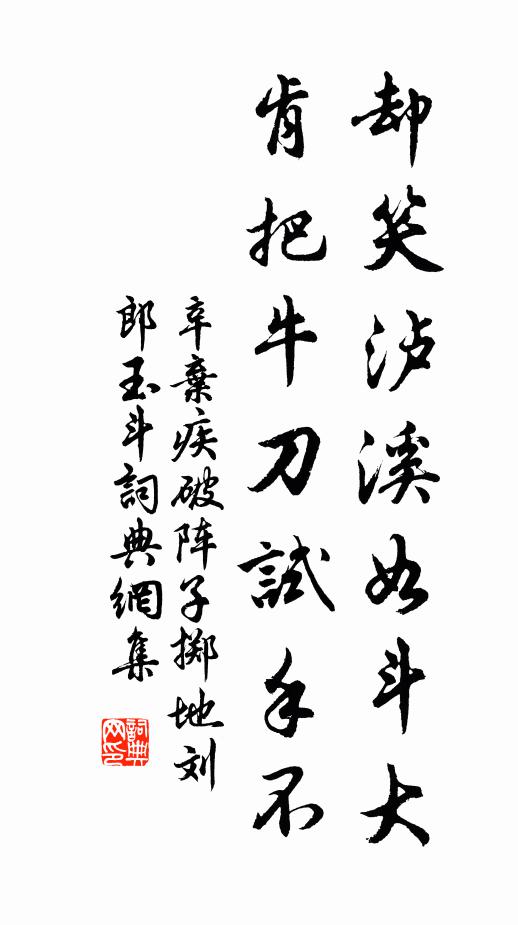 却笑泸溪如斗大
肯把牛刀試手不
辛棄疾破阵子掷地刘
郎玉斗詞典網集
詞典网印